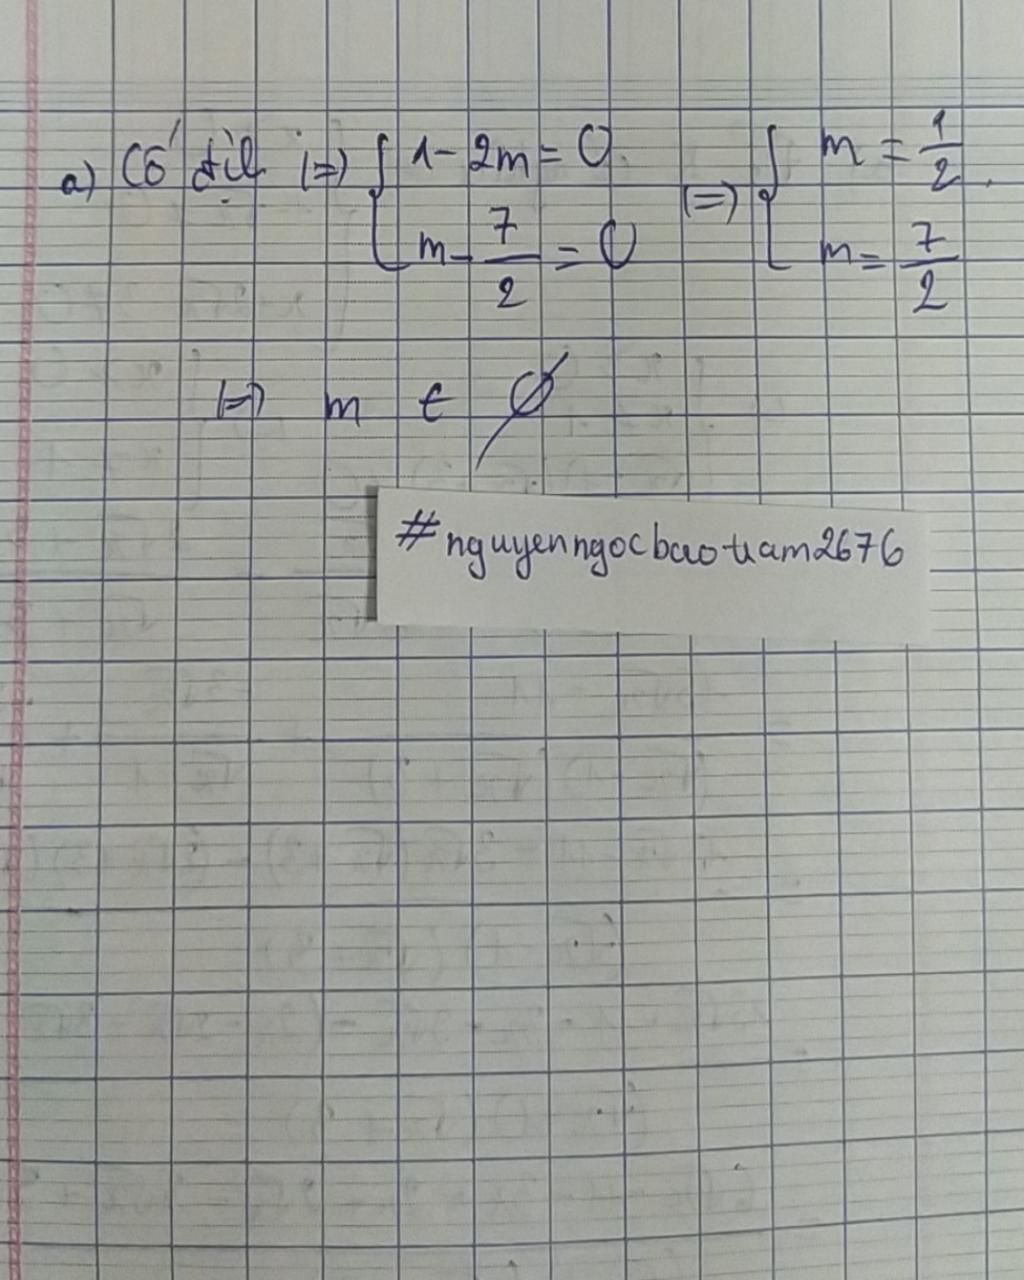 a) Có đil (=) { 1 - 2m = 0 (=) { m = 1/2
m - 7/2 = 0 m = 7/2
(=) m ∈ ∅
#nguyenngocbaotram2676